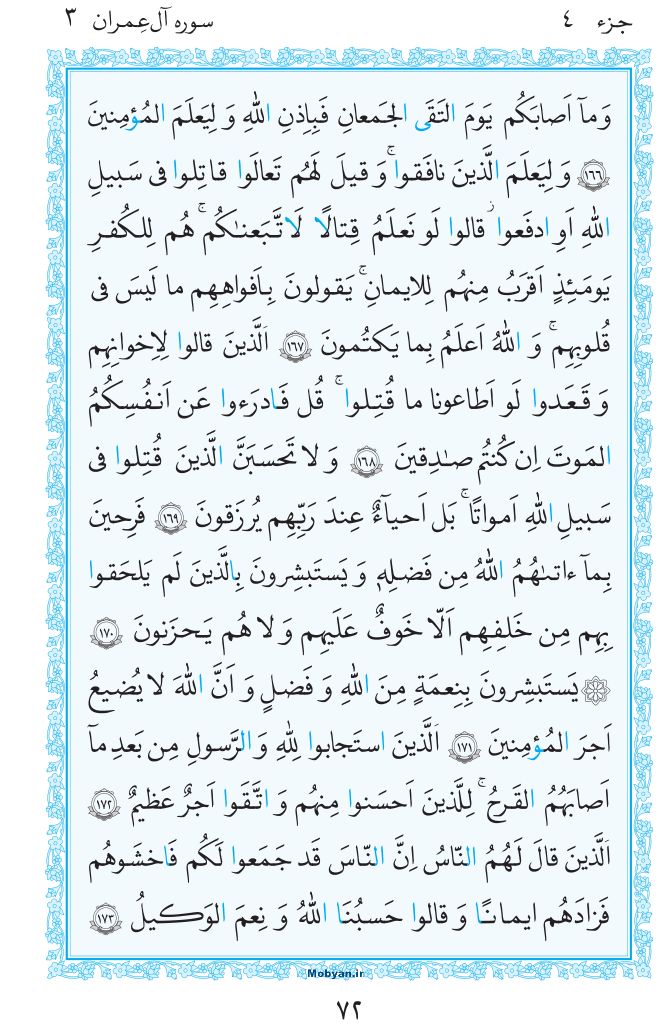 جزء ٤
سوره آل‌عِمران ٣
وَمآ اَصابَكُم يَومَ التَقَى الجَمعانِ فَبِاِذنِ اللّٰهِ وَ لِيَعلَمَ المُؤمِنينَ
﴿١٦٦﴾ وَ لِيَعلَمَ الَّذينَ نافَقوا ۚ وَ قيلَ لَهُم تَعالَوا قاتِلوا فى سَبيلِ
اللّٰهِ اَوِ ادفَعوا ۖ قالوا لَو نَعلَمُ قِتالًا لَاتَّبَعنٰكُم ۚ هُم لِلكُفرِ
يَومَئِذٍ اَقرَبُ مِنهُم لِلايمانِ ۚ يَقولونَ بِاَفواهِهِم ما لَيسَ فى
قُلوبِهِم ۚ وَ اللّٰهُ اَعلَمُ بِما يَكتُمونَ ﴿١٦٧﴾ اَلَّذينَ قالوا لِاِخوانِهِم
وَ قَعَدوا لَو اَطاعونا ما قُتِلوا ۚ قُل فَادرَءوا عَن اَنفُسِكُمُ
المَوتَ اِن كُنتُم صٰدِقينَ ﴿١٦٨﴾ وَ لا تَحسَبَنَّ الَّذينَ قُتِلوا فى
سَبيلِ اللّٰهِ اَمواتًا ۚ بَل اَحيآءٌ عِندَ رَبِّهِم يُرزَقونَ ﴿١٦٩﴾ فَرِحينَ
بِمآ ءاتىٰهُمُ اللّٰهُ مِن فَضلِهٖ وَ يَستَبشِرونَ بِالَّذينَ لَم يَلحَقوا
بِهِم مِن خَلفِهِم اَلّا خَوفٌ عَلَيهِم وَ لا هُم يَحزَنونَ ﴿١٧٠﴾
۞ يَستَبشِرونَ بِنِعمَةٍ مِنَ اللّٰهِ وَ فَضلٍ وَ اَنَّ اللّٰهَ لا يُضيعُ
اَجرَ المُؤمِنينَ ﴿١٧١﴾ اَلَّذينَ استَجابوا لِلّٰهِ وَ الرَّسولِ مِن بَعدِ مآ
اَصابَهُمُ القَرحُ ۚ لِلَّذينَ اَحسَنوا مِنهُم وَ اتَّقَوا اَجرٌ عَظيمٌ ﴿١٧٢﴾
اَلَّذينَ قالَ لَهُمُ النّاسُ اِنَّ النّاسَ قَد جَمَعوا لَكُم فَاخشَوهُم
فَزادَهُم ايمانًا وَ قالوا حَسبُنَا اللّٰهُ وَ نِعمَ الوَكيلُ ﴿١٧٣﴾
Mobyan.ir
٧٢